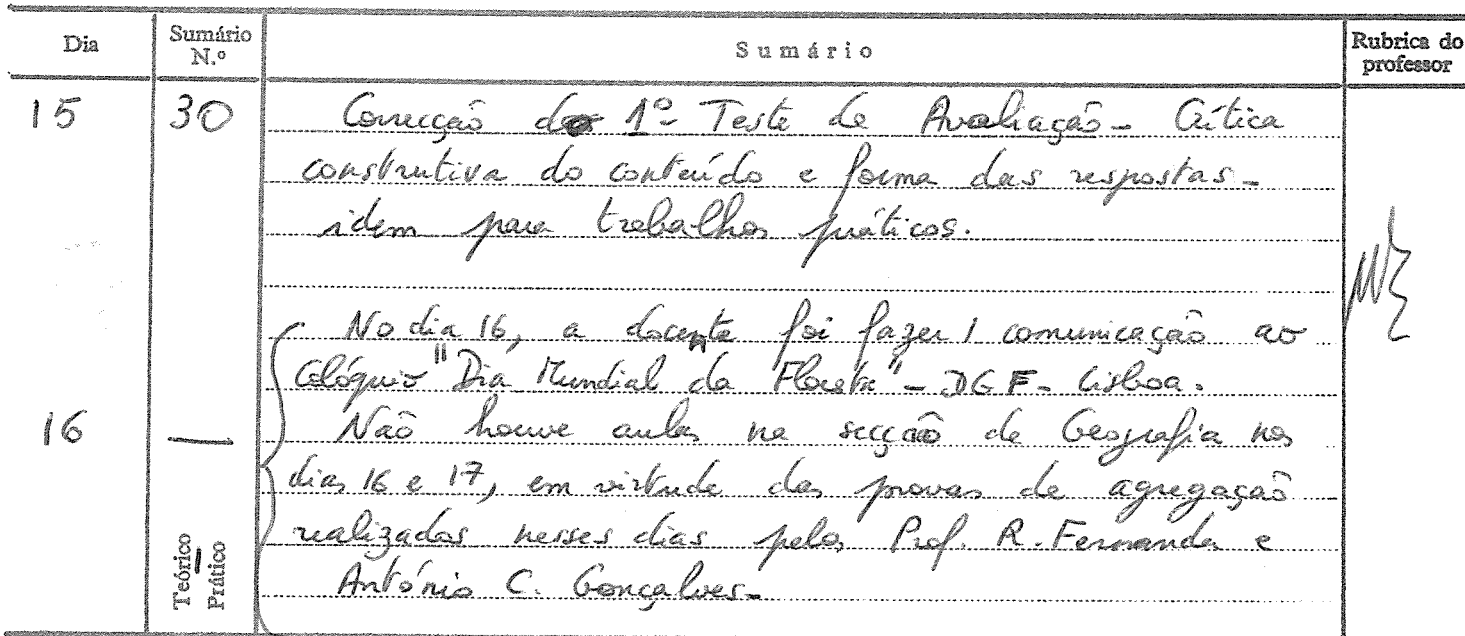 Dia Sumário N.º Sumário Rubrica do professor
15 30 Correcção do 1º Teste de Avaliação - Crítica
construtiva do conteúdo e forma das respostas -
idem para trabalhos práticos.
No dia 16, a docente foi fazer 1 comunicação ao
Colóquio "Dia Mundial da Floresta" - DGF - Lisboa.
16 — Não houve aulas na secção de Geografia nos
dias 16 e 17, em virtude das provas de agregação
realizadas nesses dias pelos Prof. R. Fernandes e
António C. Gonçalves -
Teórico
Prático